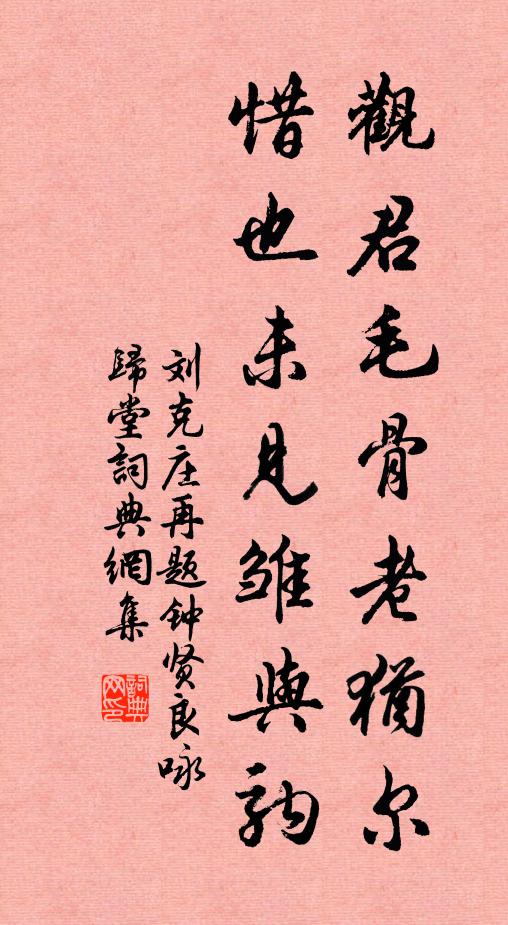 觀君毛骨老猶尔
惜也未見雏與駒
刘克庄再题钟贤良咏
歸堂詞典網集
詞典网印